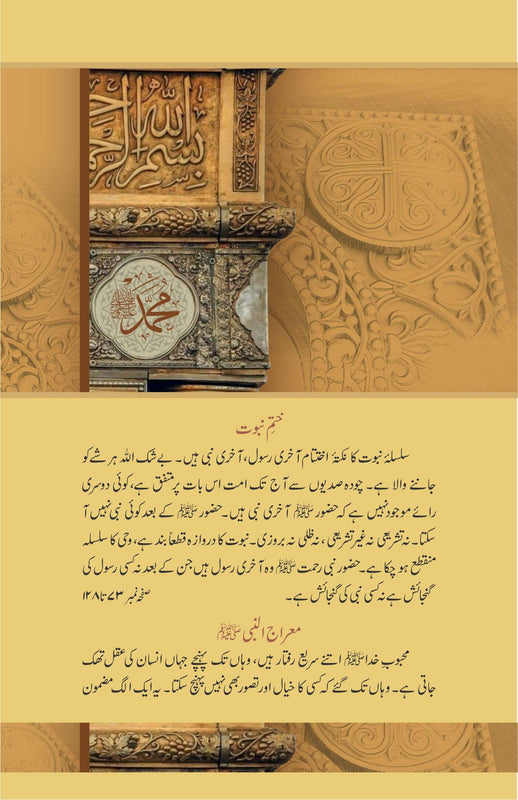 بسم الله الرحم
محمد ﷺ
ختمِ نبوت
سلسلۂ نبوت کا نکتۂ اختتام آخری رسول، آخری نبی ہیں۔ بے شک اللہ ہر شے کو
جاننے والا ہے۔ چودہ صدیوں سے آج تک امت اس بات پر متفق ہے، کوئی دوسری
رائے موجود نہیں ہے کہ حضور ﷺ آخری نبی ہیں۔ حضور ﷺ کے بعد کوئی نبی نہیں آ
سکتا۔ نہ تشریعی نہ غیر تشریعی، نہ ظلی نہ بروزی۔ نبوت کا دروازہ قطعاً بند ہے، وحی کا سلسلہ
منقطع ہو چکا ہے۔ حضور نبی رحمت ﷺ وہ آخری رسول ہیں جن کے بعد نہ کسی رسول کی
گنجائش ہے نہ کسی نبی کی گنجائش ہے۔ صفحہ نمبر ۷۳ تا ۱۲۸
معراج النبی ﷺ
محبوبِ خدا ﷺ اتنے سریع رفتار ہیں، وہاں تک پہنچے جہاں انسان کی عقل تھک
جاتی ہے۔ وہاں تک گئے کہ کسی کا خیال اور تصور بھی نہیں پہنچ سکتا۔ یہ ایک الگ مضمون